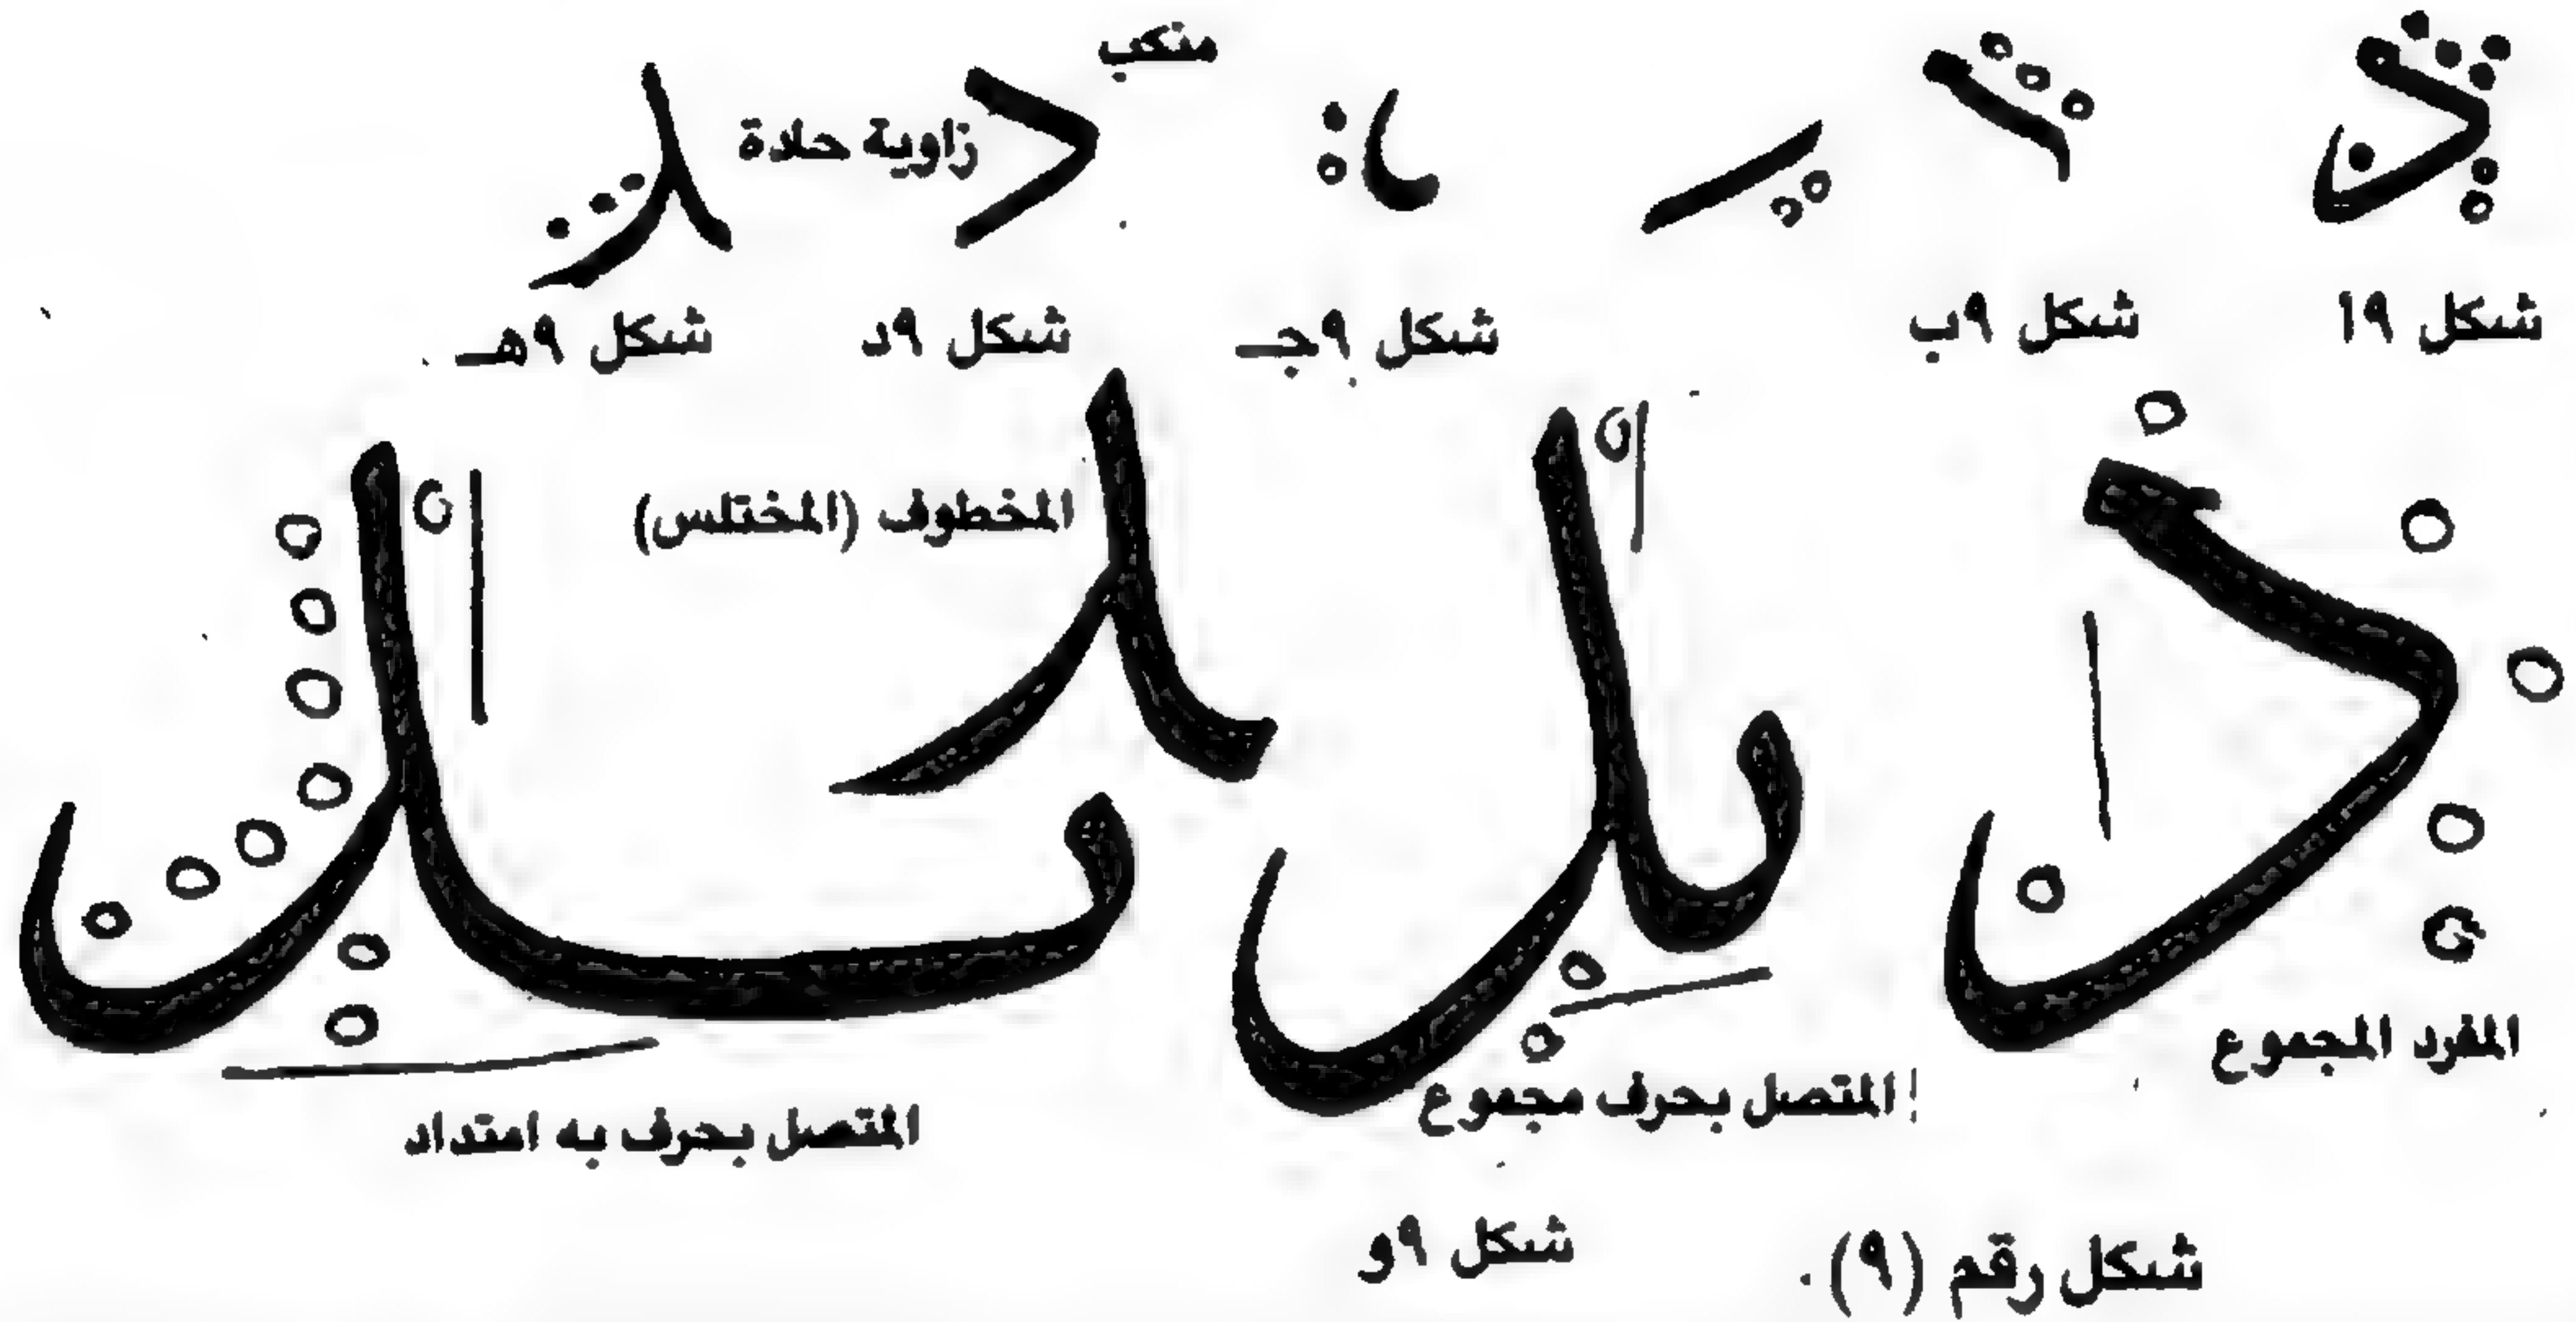 منكب
زاوية حادة
شكل ٩أ
شكل ٩ب
شكل ٩جـ
شكل ٩د
شكل ٩هـ
المخطوف (المختلس)
المفرد المجموع
المتصل بحرف مجموع
المتصل بحرف به امتداد
شكل ٩و
شكل رقم (٩).